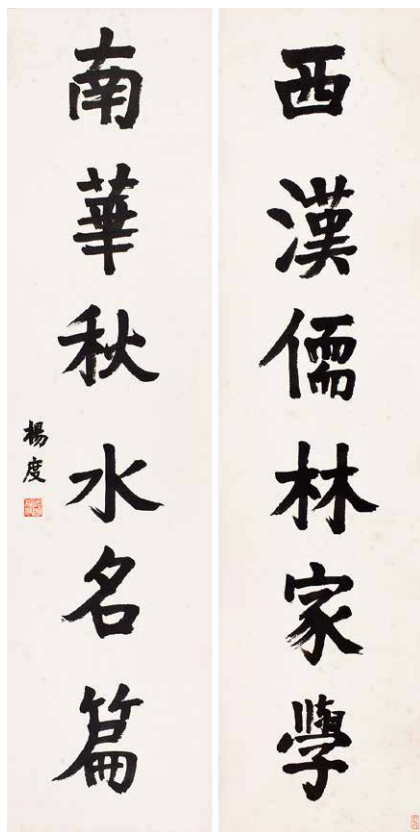 西漢儒林家學
南華秋水名篇
楊度